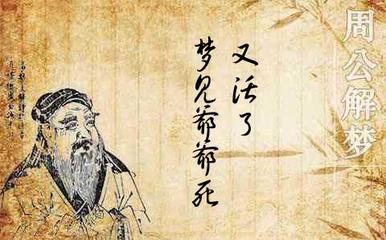 周公解梦
又活了
梦见爷爷死